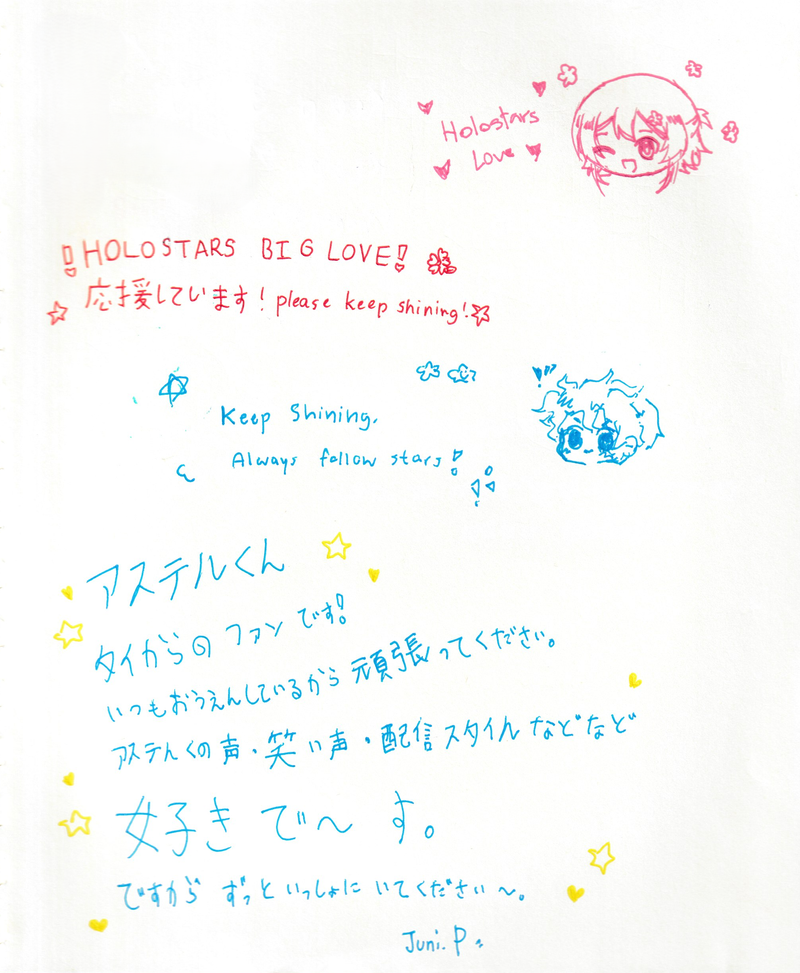 Holostars
Love
!HOLOSTARS BIG LOVE!
応援しています！please keep shining!
Keep Shining,
Always follow stars!
アステルくん
タイからの ファン です!
いつもおうえんしているから 頑張ってください。
アステルくの声・笑い声・配信スタイル などなど
好き で〜 す。
ですから ずっと いっしょに いてください〜。
Juni.P